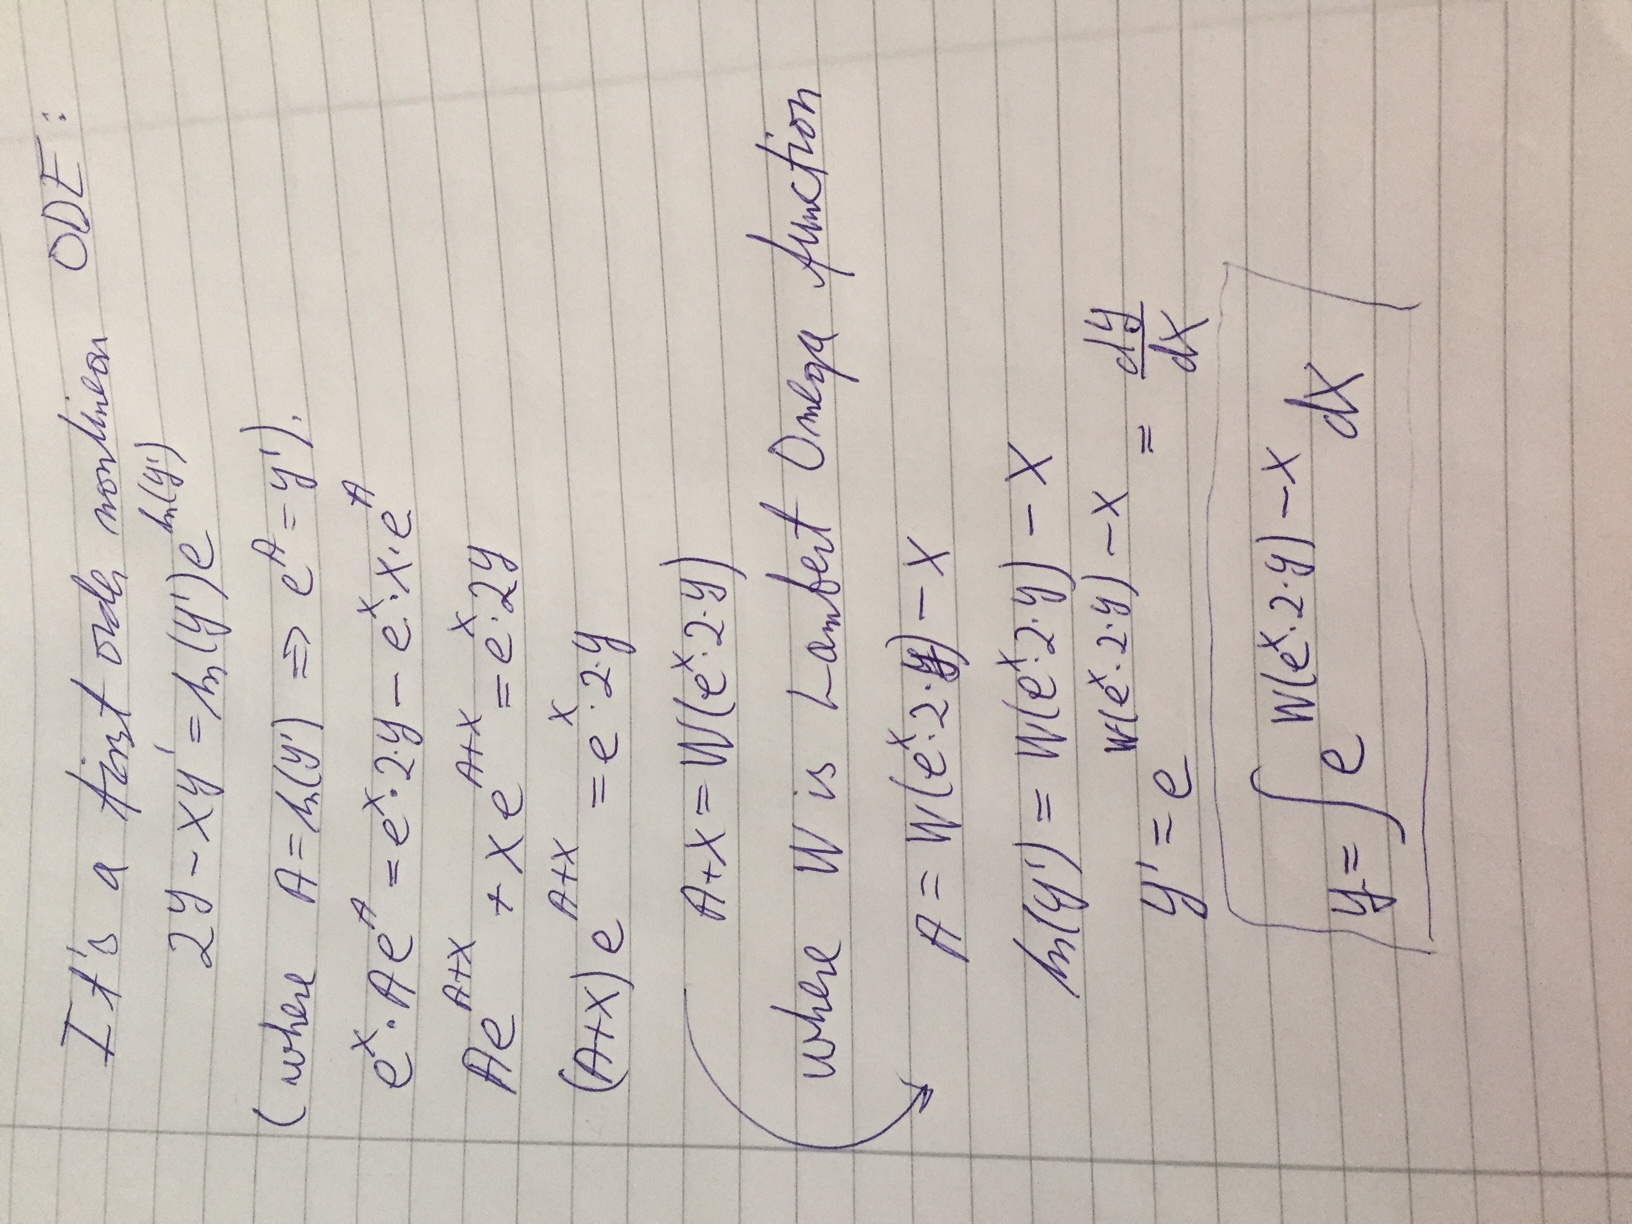 It's a first order nonlinear ODE:
2y - xy' = ln(y')e^ln(y')
(where A = ln(y') => e^A = y').
e^x · Ae^A = e^x · 2·y - e^x · x · e^A
Ae^A+x + xe^A+x = e^x · 2y
(A+x)e^A+x = e^x · 2·y
A+x = W(e^x · 2·y)
where W is Lambert Omega function
A = W(e^x · 2·y) - x
ln(y') = W(e^x · 2·y) - x
y' = e^W(e^x · 2·y) - x = dy/dx
y = ∫ e^W(e^x · 2·y) - x dx